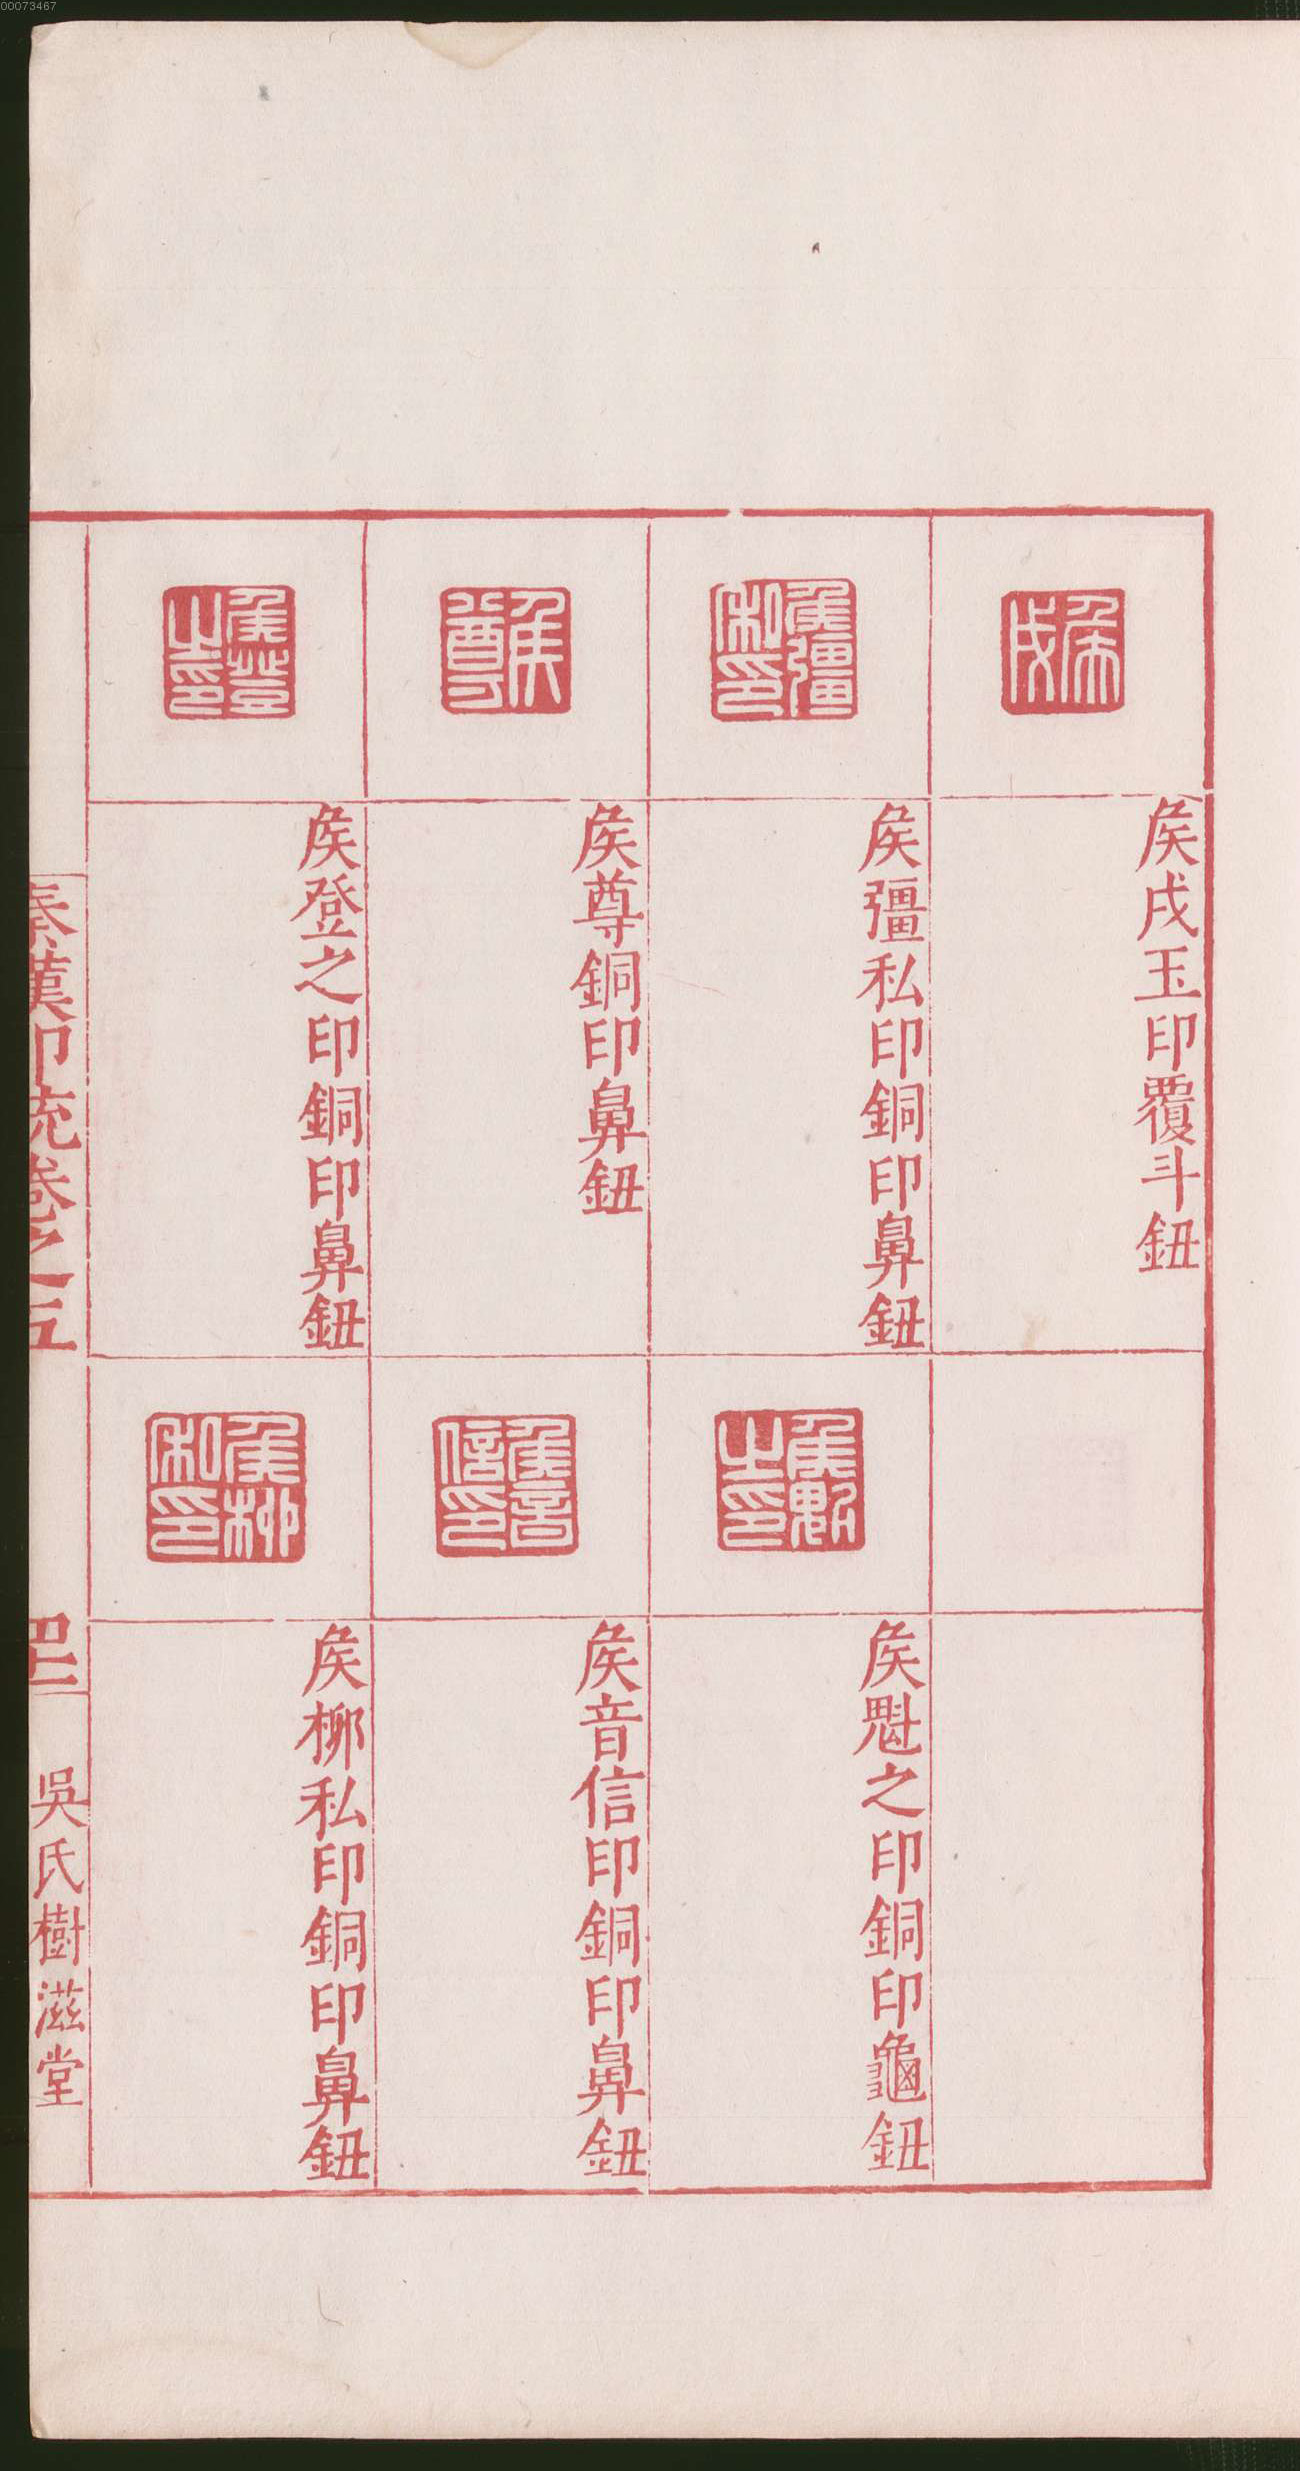 00073467
矦戌玉印覆斗鈕
矦彊私印銅印鼻鈕
矦尊銅印鼻鈕
矦登之印銅印鼻鈕
矦魁之印銅印龜鈕
矦音信印銅印鼻鈕
矦柳私印銅印鼻鈕
秦漢印統卷之五
吳氏樹滋堂